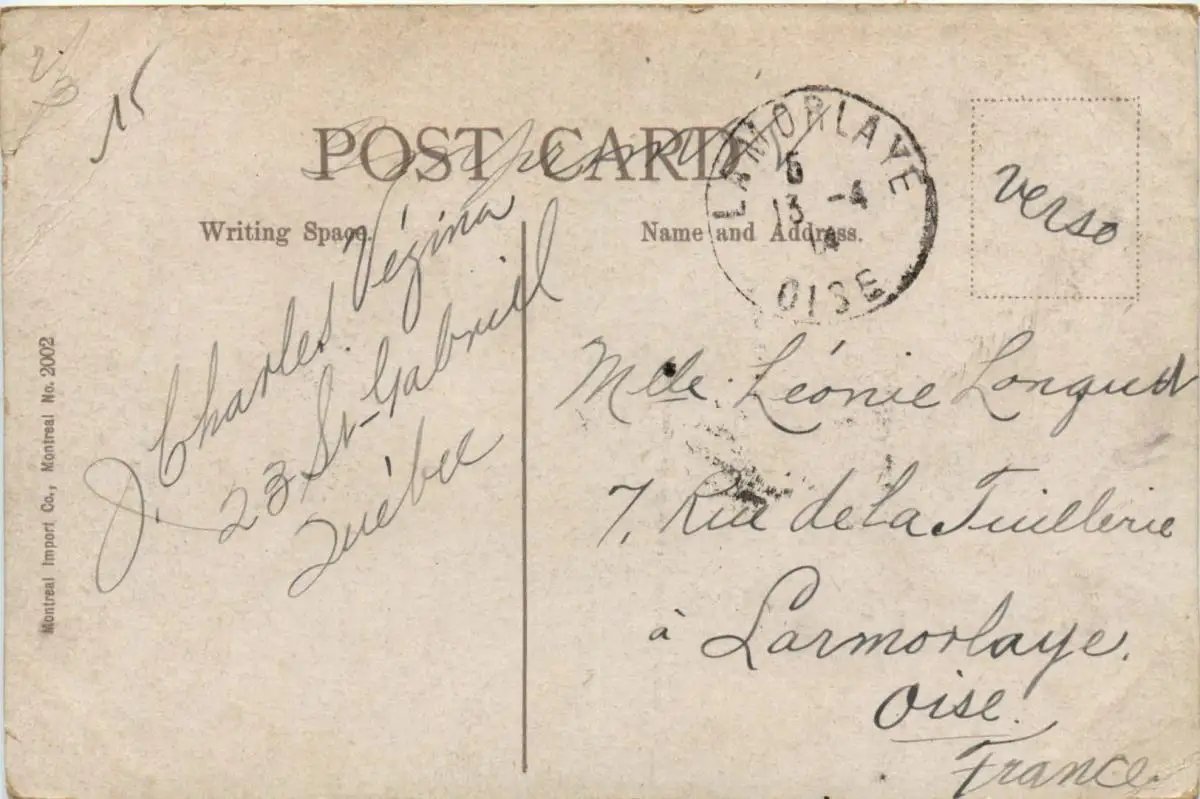 15
POST CARD
LAMORLAYE
5
13 -4
14
OISE
verso
Writing Space.
Name and Address.
J. Charles Végina
23 St-Gabriel
Québec
Mlle. Léonie Longuet
7, Rue de la Tuillerie
à Larmorlaye.
Oise.
France.
Montreal Import Co., Montreal No. 2002